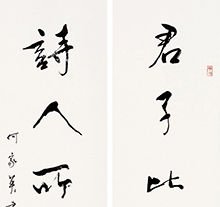 君子比
詩人所
何家英書